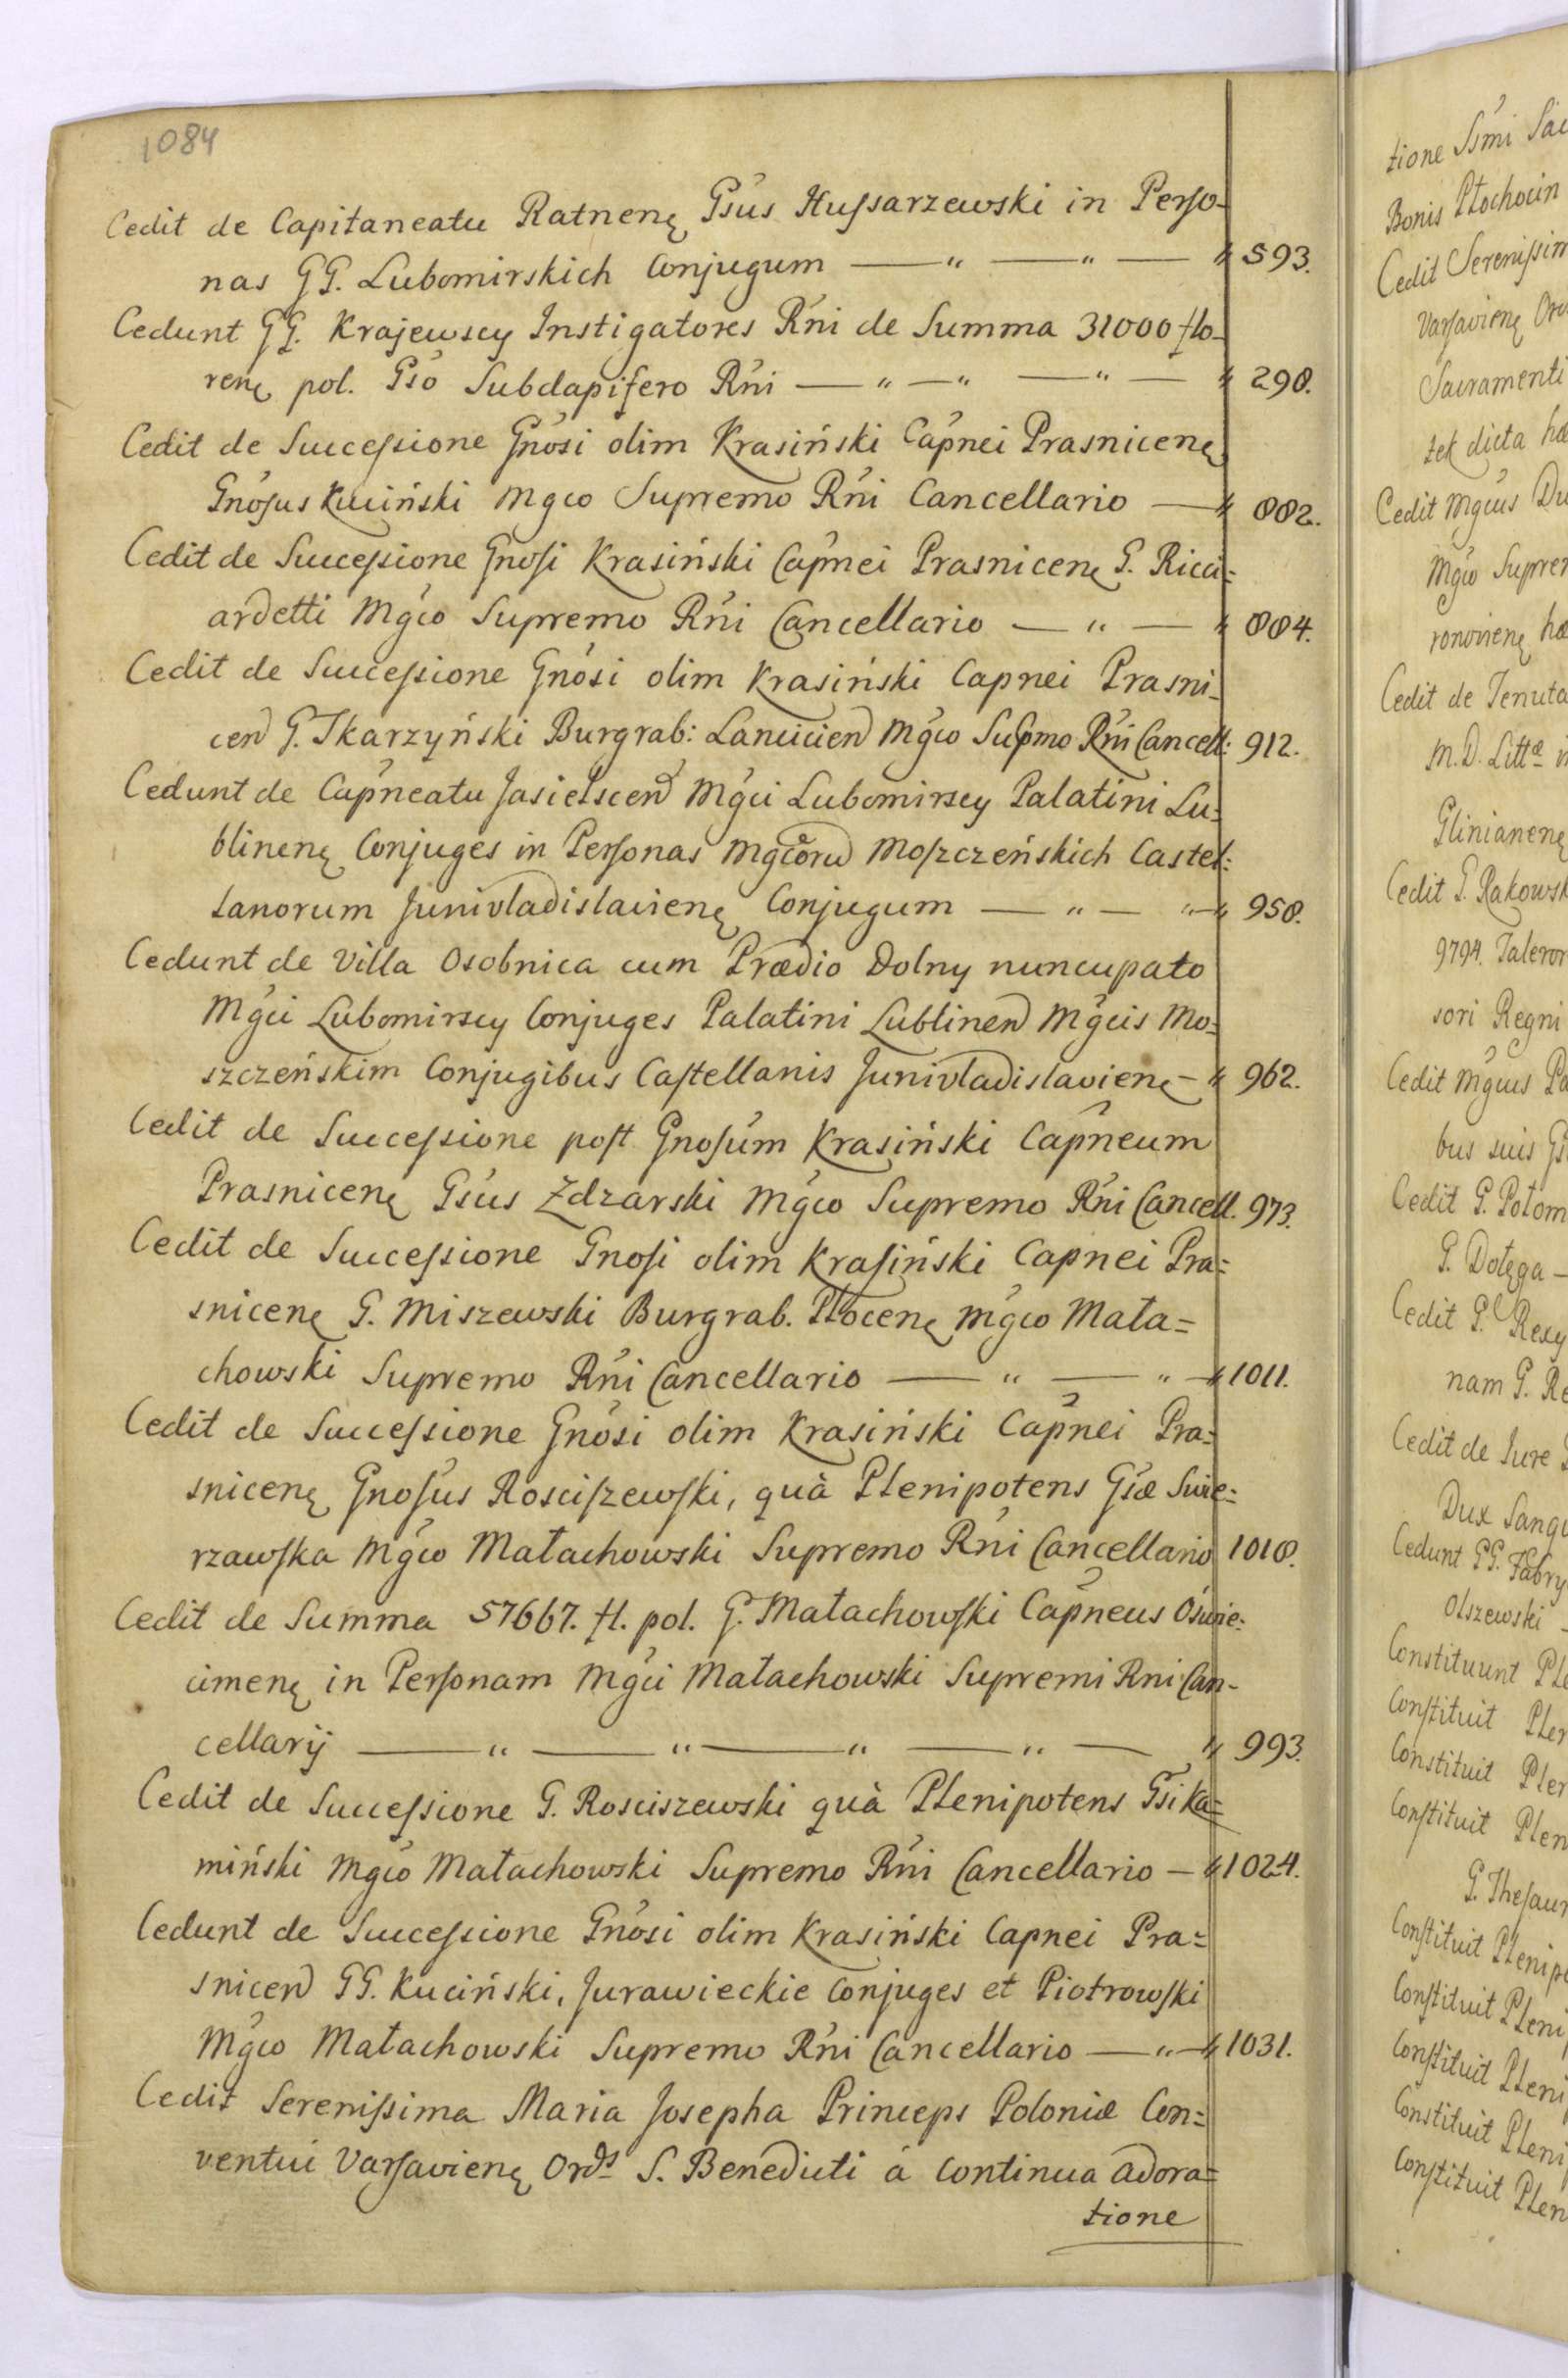 1084
Cedit de Capitaneatu Ratnenę Gsus Hussarzewski in Perso-
nas GG. Lubomirskich Conjugum — " — " — " 593.
Cedunt GG. Krajewscy Instigatores Rni de Summa 31000 flo-
renę pol. Gso Subdapifero Rni — " — " — " — " 298.
Cedit de Successione Gnosi olim Krasiński Capnei Prasnicenę
Gnosus Kuciński Mgco Supremo Rni Cancellario — " 882.
Cedit de Successione Gnosi Krasiński Capnei Prasnicenę G. Ricci=
ardetti Mgco Supremo Rni Cancellario — " — " 884.
Cedit de Successione Gnosi olim Krasiński Capnei Prasni-
cen G. Skarzyński Burgrab: Lancicien Mgco Supmo Rni Cancell: 912.
Cedunt de Capneatu Jasielscen Mgci Lubomirscy Palatini Lu=
blinenę Conjuges in Personas Mgcoru Moszczeńskich Castel:
lanorum Junivladislavienę Conjugum — " — " — " 958.
Cedunt de Villa Osobnica cum Prædio Dolny nuncupato
Mgci Lubomirscy Conjuges Palatini Lublinen Mgcis Mo=
szczeńskim Conjugibus Castellanis Junivladislavienę — " 962.
Cedit de Successione post Gnosum Krasiński Capneum
Prasnicenę Gsus Zdzarski Mgco Supremo Rni Cancell. 973.
Cedit de Successione Gnosi olim Krasiński Capnei Pra=
snicenę G. Miszewski Burgrab. Płocenę Mgco Mała=
chowski Supremo Rni Cancellario — " — " — " 1011.
Cedit de Successione Gnosi olim Krasiński Capnei Pra=
snicenę Gnosus Rosciszewski, quà Plenipotens Gsæ Swie=
rzawska Mgco Małachowski Supremo Rni Cancellario 1018.
Cedit de Summa 57667. fl. pol. G. Małachowski Capneus Oświe:
cimenę in Personam Mgci Małachowski Supremi Rni Can-
cellarij — " — " — " — " — " 993.
Cedit de Successione G. Rosciszewski quà Plenipotens Gsi Ka=
miński Mgco Małachowski Supremo Rni Cancellario — " 1024.
Cedunt de Successione Gnosi olim Krasiński Capnei Pra=
snicen GG. Kuciński, Jurawieckie Conjuges et Piotrowski
Mgco Małachowski Supremo Rni Cancellario — " — " 1031.
Cedit Serenissima Maria Josepha Princeps Poloniæ Con=
ventui Varsavienę Ordis S. Benedicti à continua adora=
tione
tione Ssmi Sac
Bonis Płochocin
Cedit Serenissim
Varsavienę Ord
Sacramenti
tek dicta hæ
Cedit Mgcus Du
Mgco Suprem
ronovienę hæ
Cedit de Tenuta
M.D. Littæ i
Glinianenę
Cedit G. Rakowsk
9794. Taleror
sori Regni
Cedit Mgcus Pa
bus suis Gs
Cedit G. Potom
G. Dołęga —
Cedit G. Rexy
nam G. Re
Cedit de Jure
Dux Sangu
Cedunt GG. Fabry
Olszewski —
Constituunt Ple
Constituit Plen
Constituit Plen
Constituit Plen
G. Thesaur
Constituit Plenipo
Constituit Pleni
Constituit Pleni
Constituit Pleni
Constituit Plen